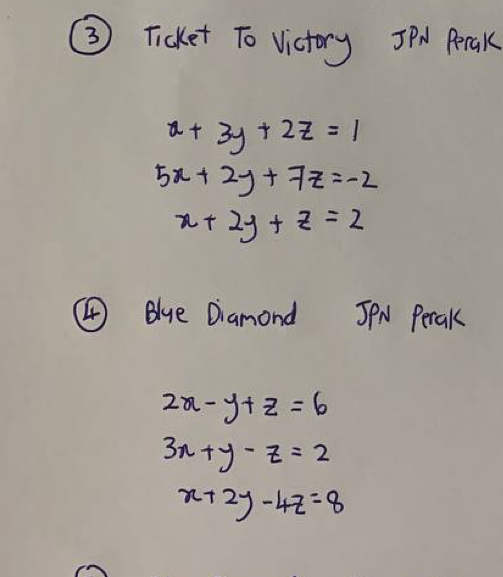 3 Ticket To Victory JPN Perak
x + 3y + 2z = 1
5x + 2y + 7z = -2
x + 2y + z = 2
4 Blue Diamond JPN Perak
2x - y + z = 6
3x + y - z = 2
x + 2y - 4z = 8